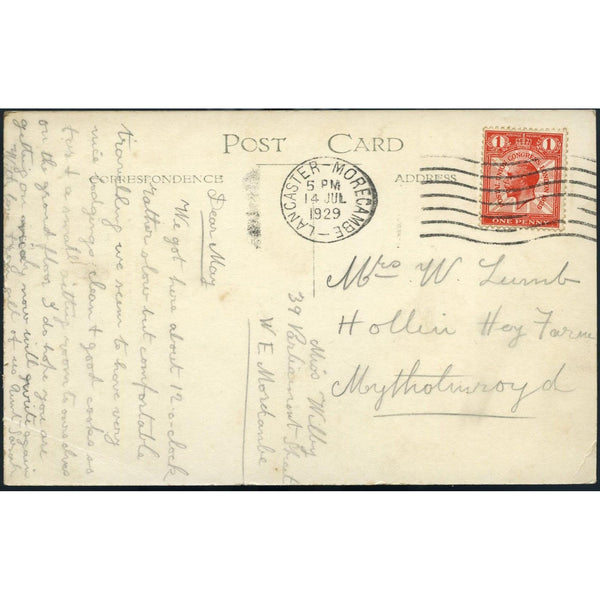 POST CARD
CORRESPONDENCE
ADDRESS
LANCASTER-MORECAMBE
5 PM
14 JUL
1929
1 1
POSTAL UNION CONGRESS LONDON
ONE PENNY
Mrs W. Lumb
Hollin Hey Farm
Mytholmroyd
Dear May
We got here about 12-o-clock
rather slow but comfortable
travelling we seem to have very
nice lodgings clean & good cooks
& small sitting room to ourselves
on the ground floor. I do hope you are
getting on nicely now will write again
With love from all of us Aunt
Miss Wilby
39 Parliament Street
W. E. Morecambe